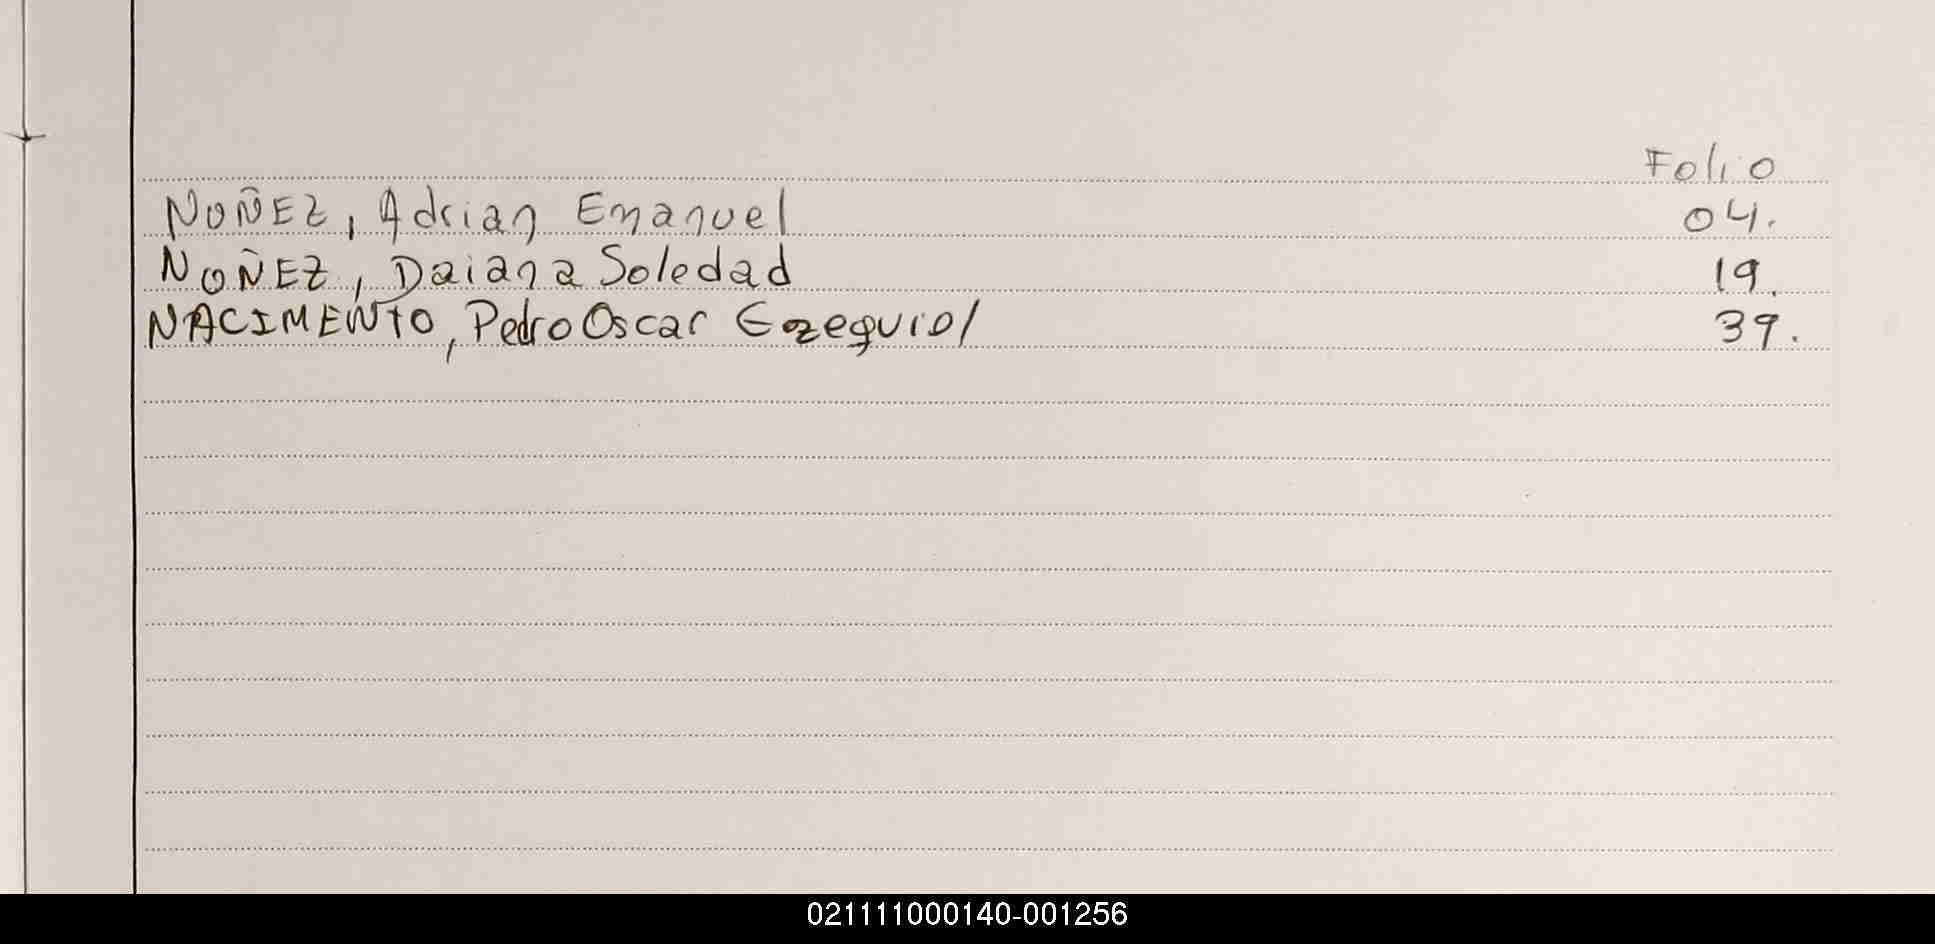 Folio
NUÑEZ, Adrian Emanuel 04.
NUÑEZ, Daiana Soledad 19.
NACIMENTO, Pedro Oscar Ezequiel 39.
021111000140-001256